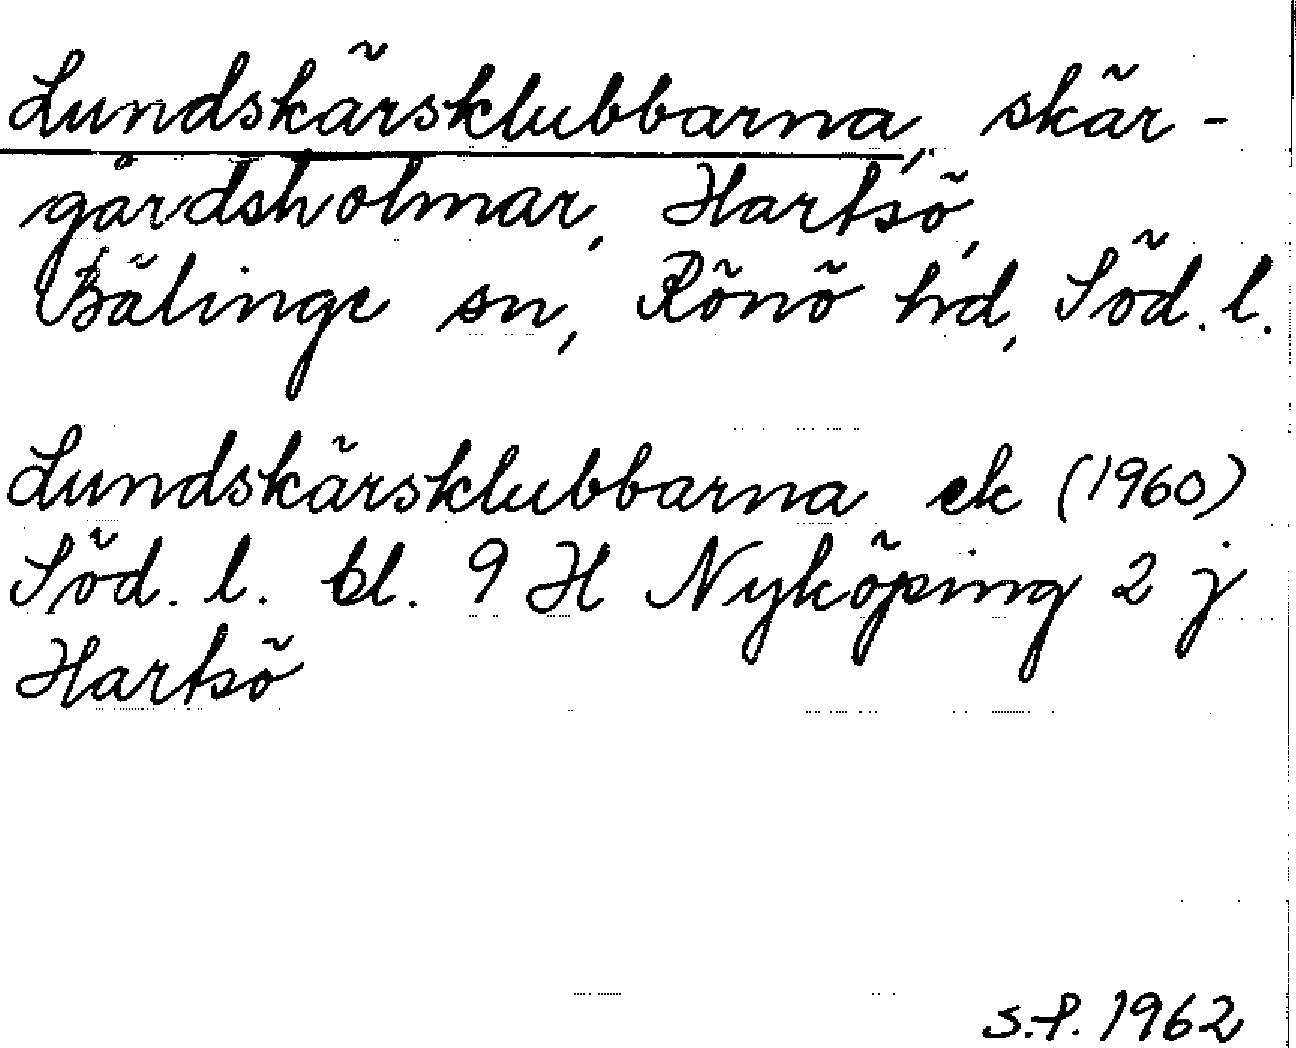 Lundskärsklubbarna, skär-
gårdsholmar, Hartsö,
Bälinge sn, Rönö hd, Söd. l.
Lundskärsklubbarna ek (1960)
Söd. l. bl. 9 H Nyköping 2 j
Hartsö
S.F. 1962